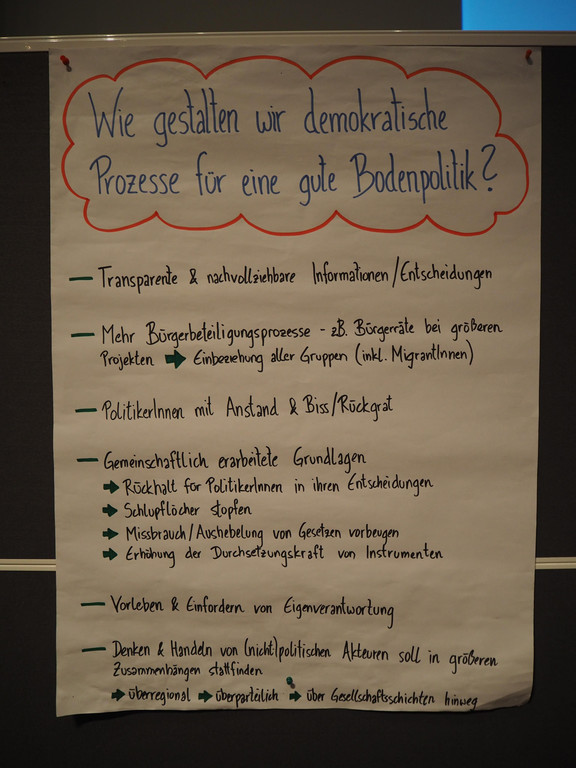 Wie gestalten wir demokratische
Prozesse für eine gute Bodenpolitik?
— Transparente & nachvollziehbare Informationen/Entscheidungen
— Mehr Bürgerbeteiligungsprozesse - zB. Bürgerräte bei größeren
Projekten ➔ Einbeziehung aller Gruppen (inkl. MigrantInnen)
— PolitikerInnen mit Anstand & Biss/Rückgrat
— Gemeinschaftlich erarbeitete Grundlagen
➔ Rückhalt für PolitikerInnen in ihren Entscheidungen
➔ Schlupflöcher stopfen
➔ Missbrauch/Aushebelung von Gesetzen vorbeugen
➔ Erhöhung der Durchsetzungskraft von Instrumenten
— Vorleben & Einfordern von Eigenverantwortung
— Denken & Handeln von (nicht)politischen Akteuren soll in größeren
Zusammenhängen stattfinden
➔ überregional ➔ überparteilich ➔ über Gesellschaftsschichten hinweg